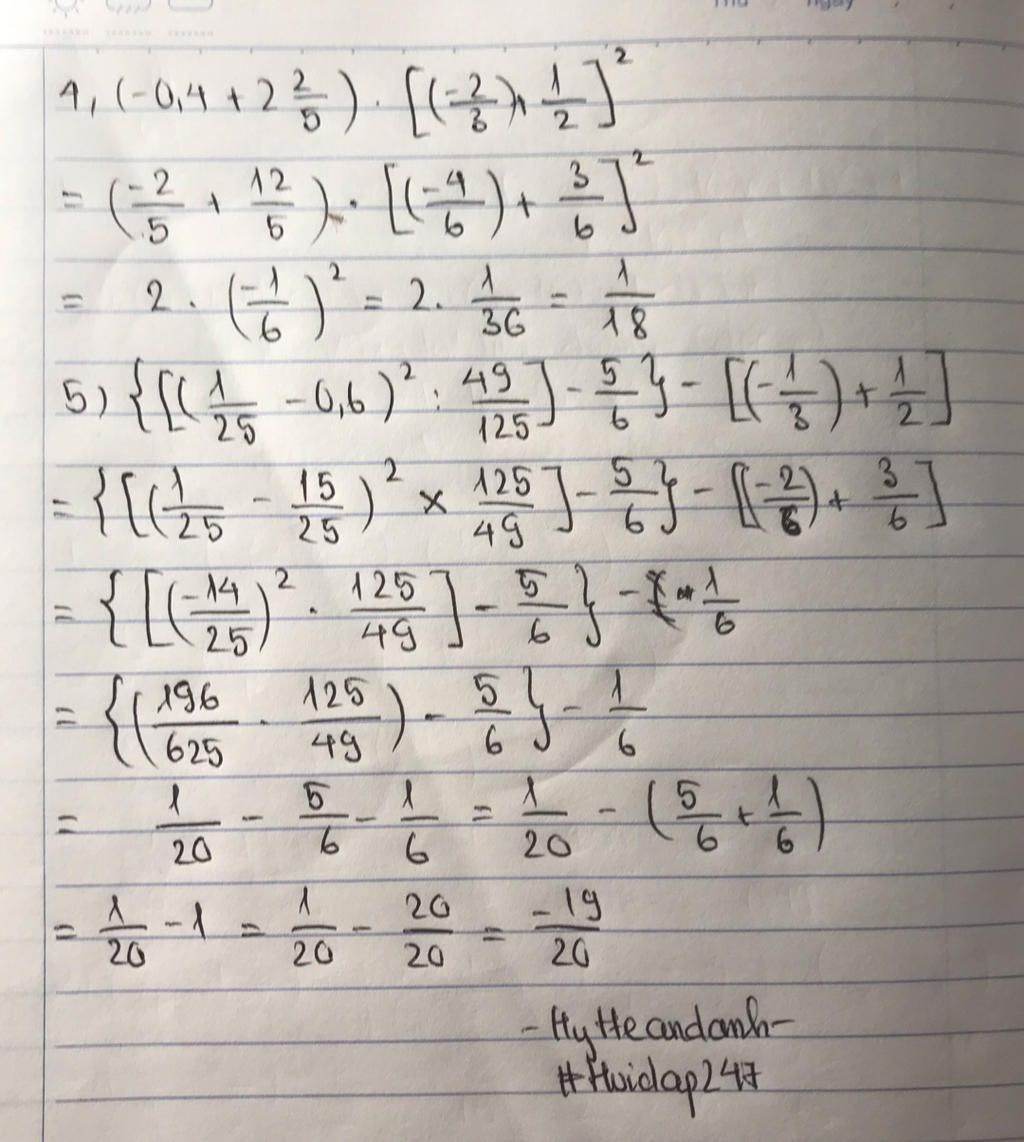 Thứ ngày
4, (-0,4 + 2 2/5) · [(-2/3) + 1/2]²
= (-2/5 + 12/5) · [(-4/6) + 3/6]²
= 2 · (-1/6)² = 2 · 1/36 = 1/18
5) {[(1/25 - 0,6)² : 49/125] - 5/6} - [(-1/3) + 1/2]
= {[(1/25 - 15/25)² × 125/49] - 5/6} - [(-2/6) + 3/6]
= {[(-14/25)² · 125/49] - 5/6} - 1/6
= {(196/625 · 125/49) - 5/6} - 1/6
= 1/20 - 5/6 - 1/6 = 1/20 - (5/6 + 1/6)
= 1/20 - 1 = 1/20 - 20/20 = -19/20
#Hoidap247